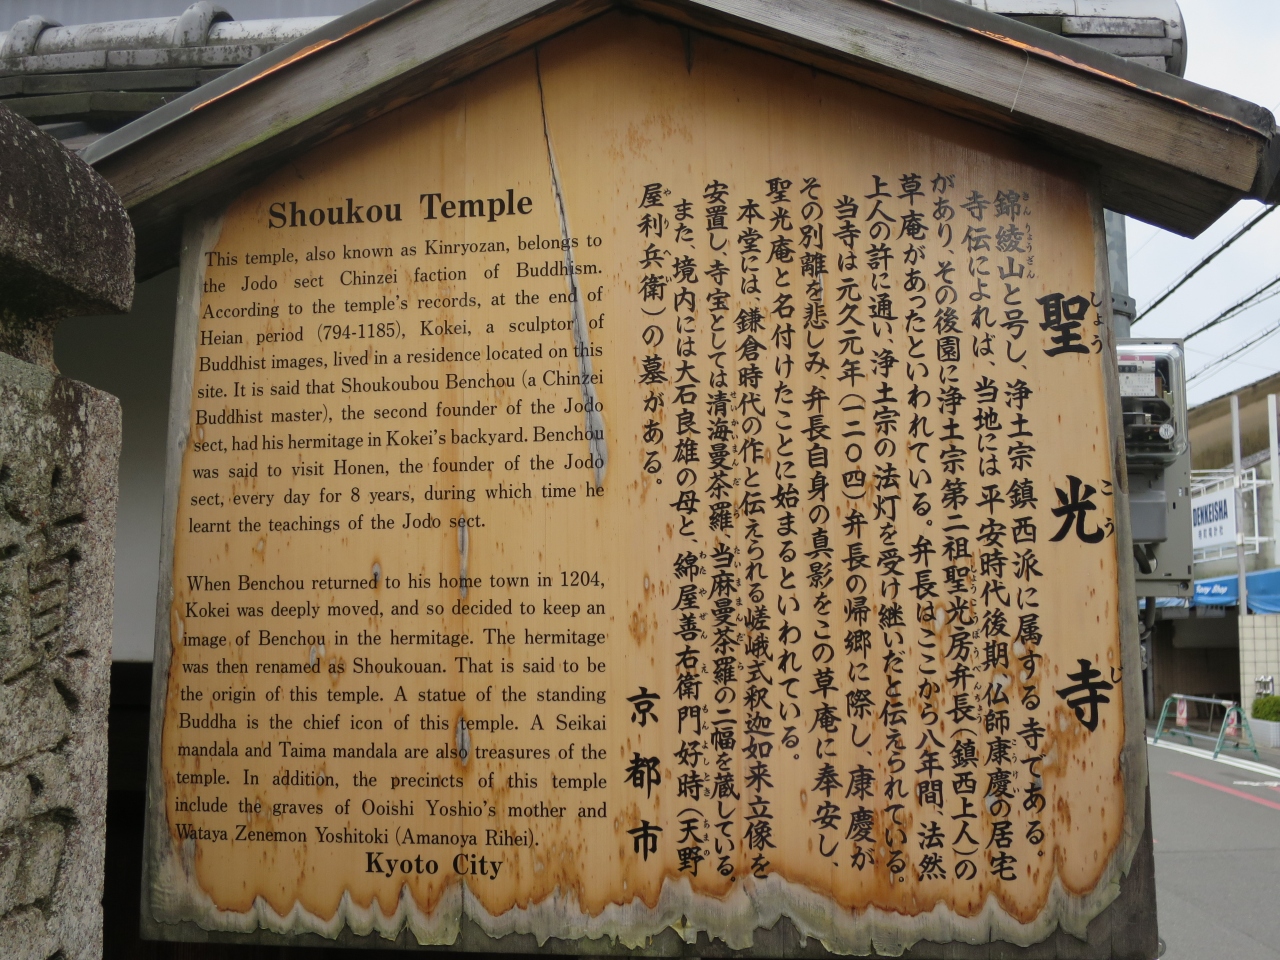 Shoukou Temple
This temple, also known as Kinryozan, belongs to
the Jodo sect Chinzei faction of Buddhism.
According to the temple's records, at the end of
Heian period (794-1185), Kokei, a sculptor of
Buddhist images, lived in a residence located on this
site. It is said that Shoukoubou Benchou (a Chinzei
Buddhist master), the second founder of the Jodo
sect, had his hermitage in Kokei's backyard. Benchou
was said to visit Honen, the founder of the Jodo
sect, every day for 8 years, during which time he
learnt the teachings of the Jodo sect.
When Benchou returned to his home town in 1204,
Kokei was deeply moved, and so decided to keep an
image of Benchou in the hermitage. The hermitage
was then renamed as Shoukouan. That is said to be
the origin of this temple. A statue of the standing
Buddha is the chief icon of this temple. A Seikai
mandala and Taima mandala are also treasures of the
temple. In addition, the precincts of this temple
include the graves of Ooishi Yoshio's mother and
Wataya Zenemon Yoshitoki (Amanoya Rihei).
Kyoto City
聖光寺
しょうこうじ
錦綾山と号し、浄土宗鎮西派に属する寺である。
寺伝によれば、当地には平安時代後期、仏師康慶の居宅
があり、その後園に浄土宗第二祖聖光房弁長(鎮西上人)の
草庵があったといわれている。弁長はここから八年間、法然
上人の許に通い、浄土宗の法灯を受け継いだと伝えられている。
当寺は元久元年(一二〇四)弁長の帰郷に際し、康慶が
その別離を悲しみ、弁長自身の真影をこの草庵に奉安し、
聖光庵と名付けたことに始まるといわれている。
本堂には、鎌倉時代の作と伝えられる嵯峨式釈迦如来立像を
安置し、寺宝としては清海曼荼羅、当麻曼荼羅の二幅を蔵している。
また、境内には大石良雄の母と、綿屋善右衛門好時(天野
屋利兵衛)の墓がある。
京都市
DENKEISHA